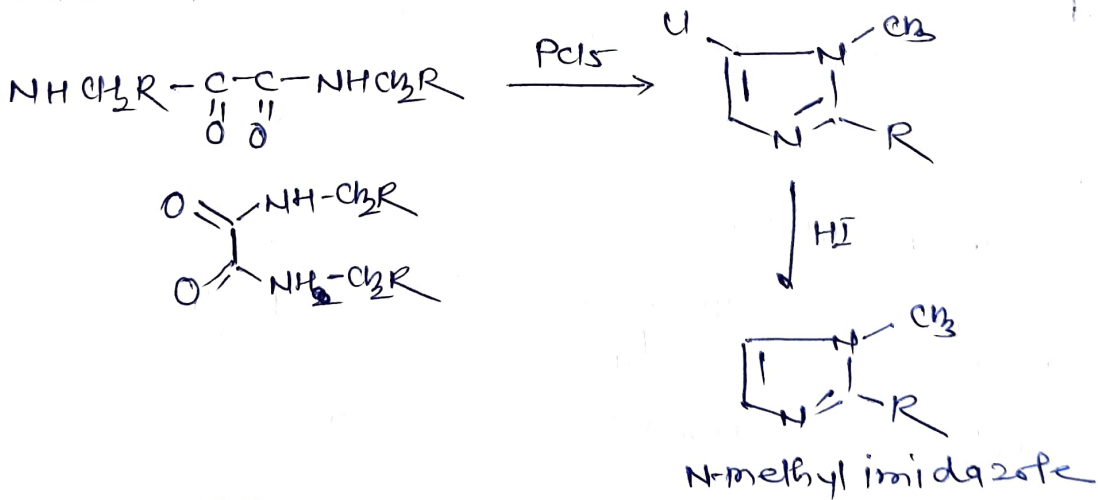 PCl5
NHCH2R-C-C-NHCH2R
O O
Cl
N-CH3
N
R
O
NH-CH2R
O
NH-CH2R
HI
N-CH3
N
R
N-methyl imidazole